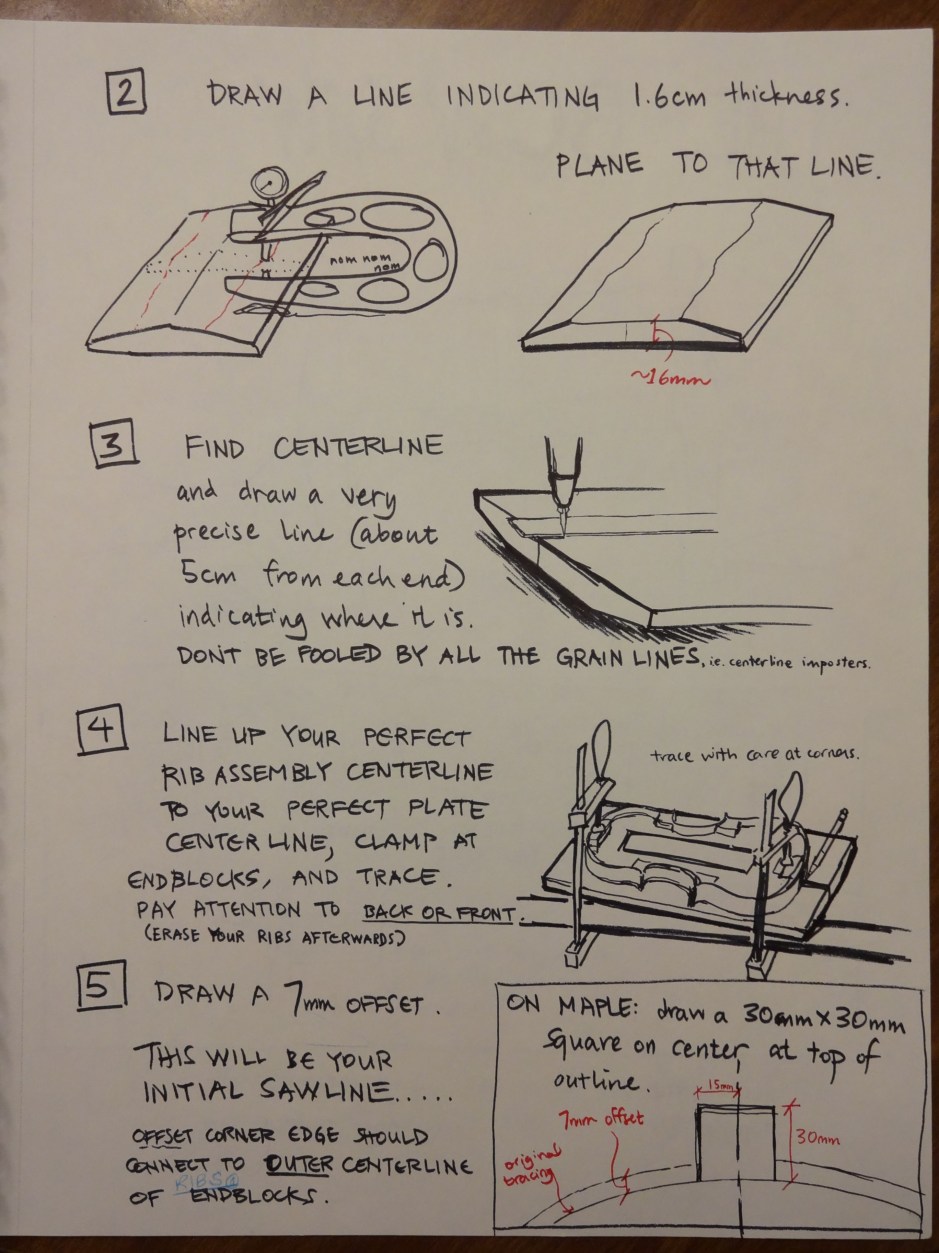 2 DRAW A LINE INDICATING 1.6cm thickness.
PLANE TO THAT LINE.
nom nom
nom
~16mm
3 FIND CENTERLINE
and draw a very
precise line (about
5cm from each end)
indicating where it is.
DONT BE FOOLED BY ALL THE GRAIN LINES, ie. centerline imposters.
4 LINE UP YOUR PERFECT
RIB ASSEMBLY CENTERLINE
TO YOUR PERFECT PLATE
CENTERLINE, CLAMP AT
ENDBLOCKS, AND TRACE.
PAY ATTENTION TO BACK OR FRONT.
(ERASE YOUR RIBS AFTERWARDS)
trace with care at corners.
5 DRAW A 7mm OFFSET.
THIS WILL BE YOUR
INITIAL SAWLINE.....
OFFSET CORNER EDGE SHOULD
CONNECT TO OUTER CENTERLINE
OF RIBS@ ENDBLOCKS.
ON MAPLE: draw a 30mm X 30mm
square on center at top of
outline.
15mm
7mm offset
30mm
original
tracing